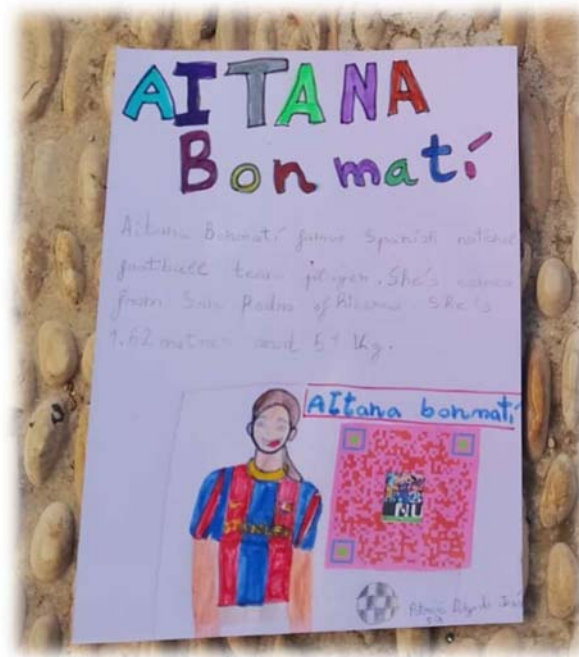 AITANA
Bonmatí
Aitana Bonmatí famous Spanish national
football team player. She's comes
from San Pedro of Ribas. She's
1.62 metres and 51 Kg.
AItana bonmatí